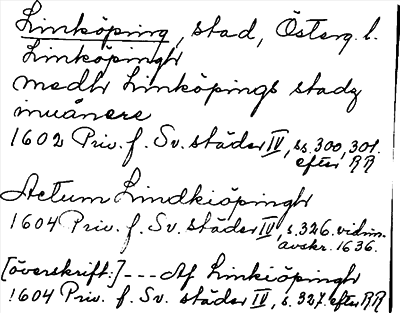 Linköping, stad, Österg. l.
Linköpingh
medh Linköpings stadz
inuånere
1602 Priv. f. Sv. städer IV, ss. 300, 301.
efter RR
Actum Lindkiöpingh
1604 Priv. f. Sv. städer IV, s. 326. vidim.
avskr. 1636.
[överskrift:] --- Af Linkiöpingh
1604 Priv. f. Sv. städer IV, s. 327. efter RR